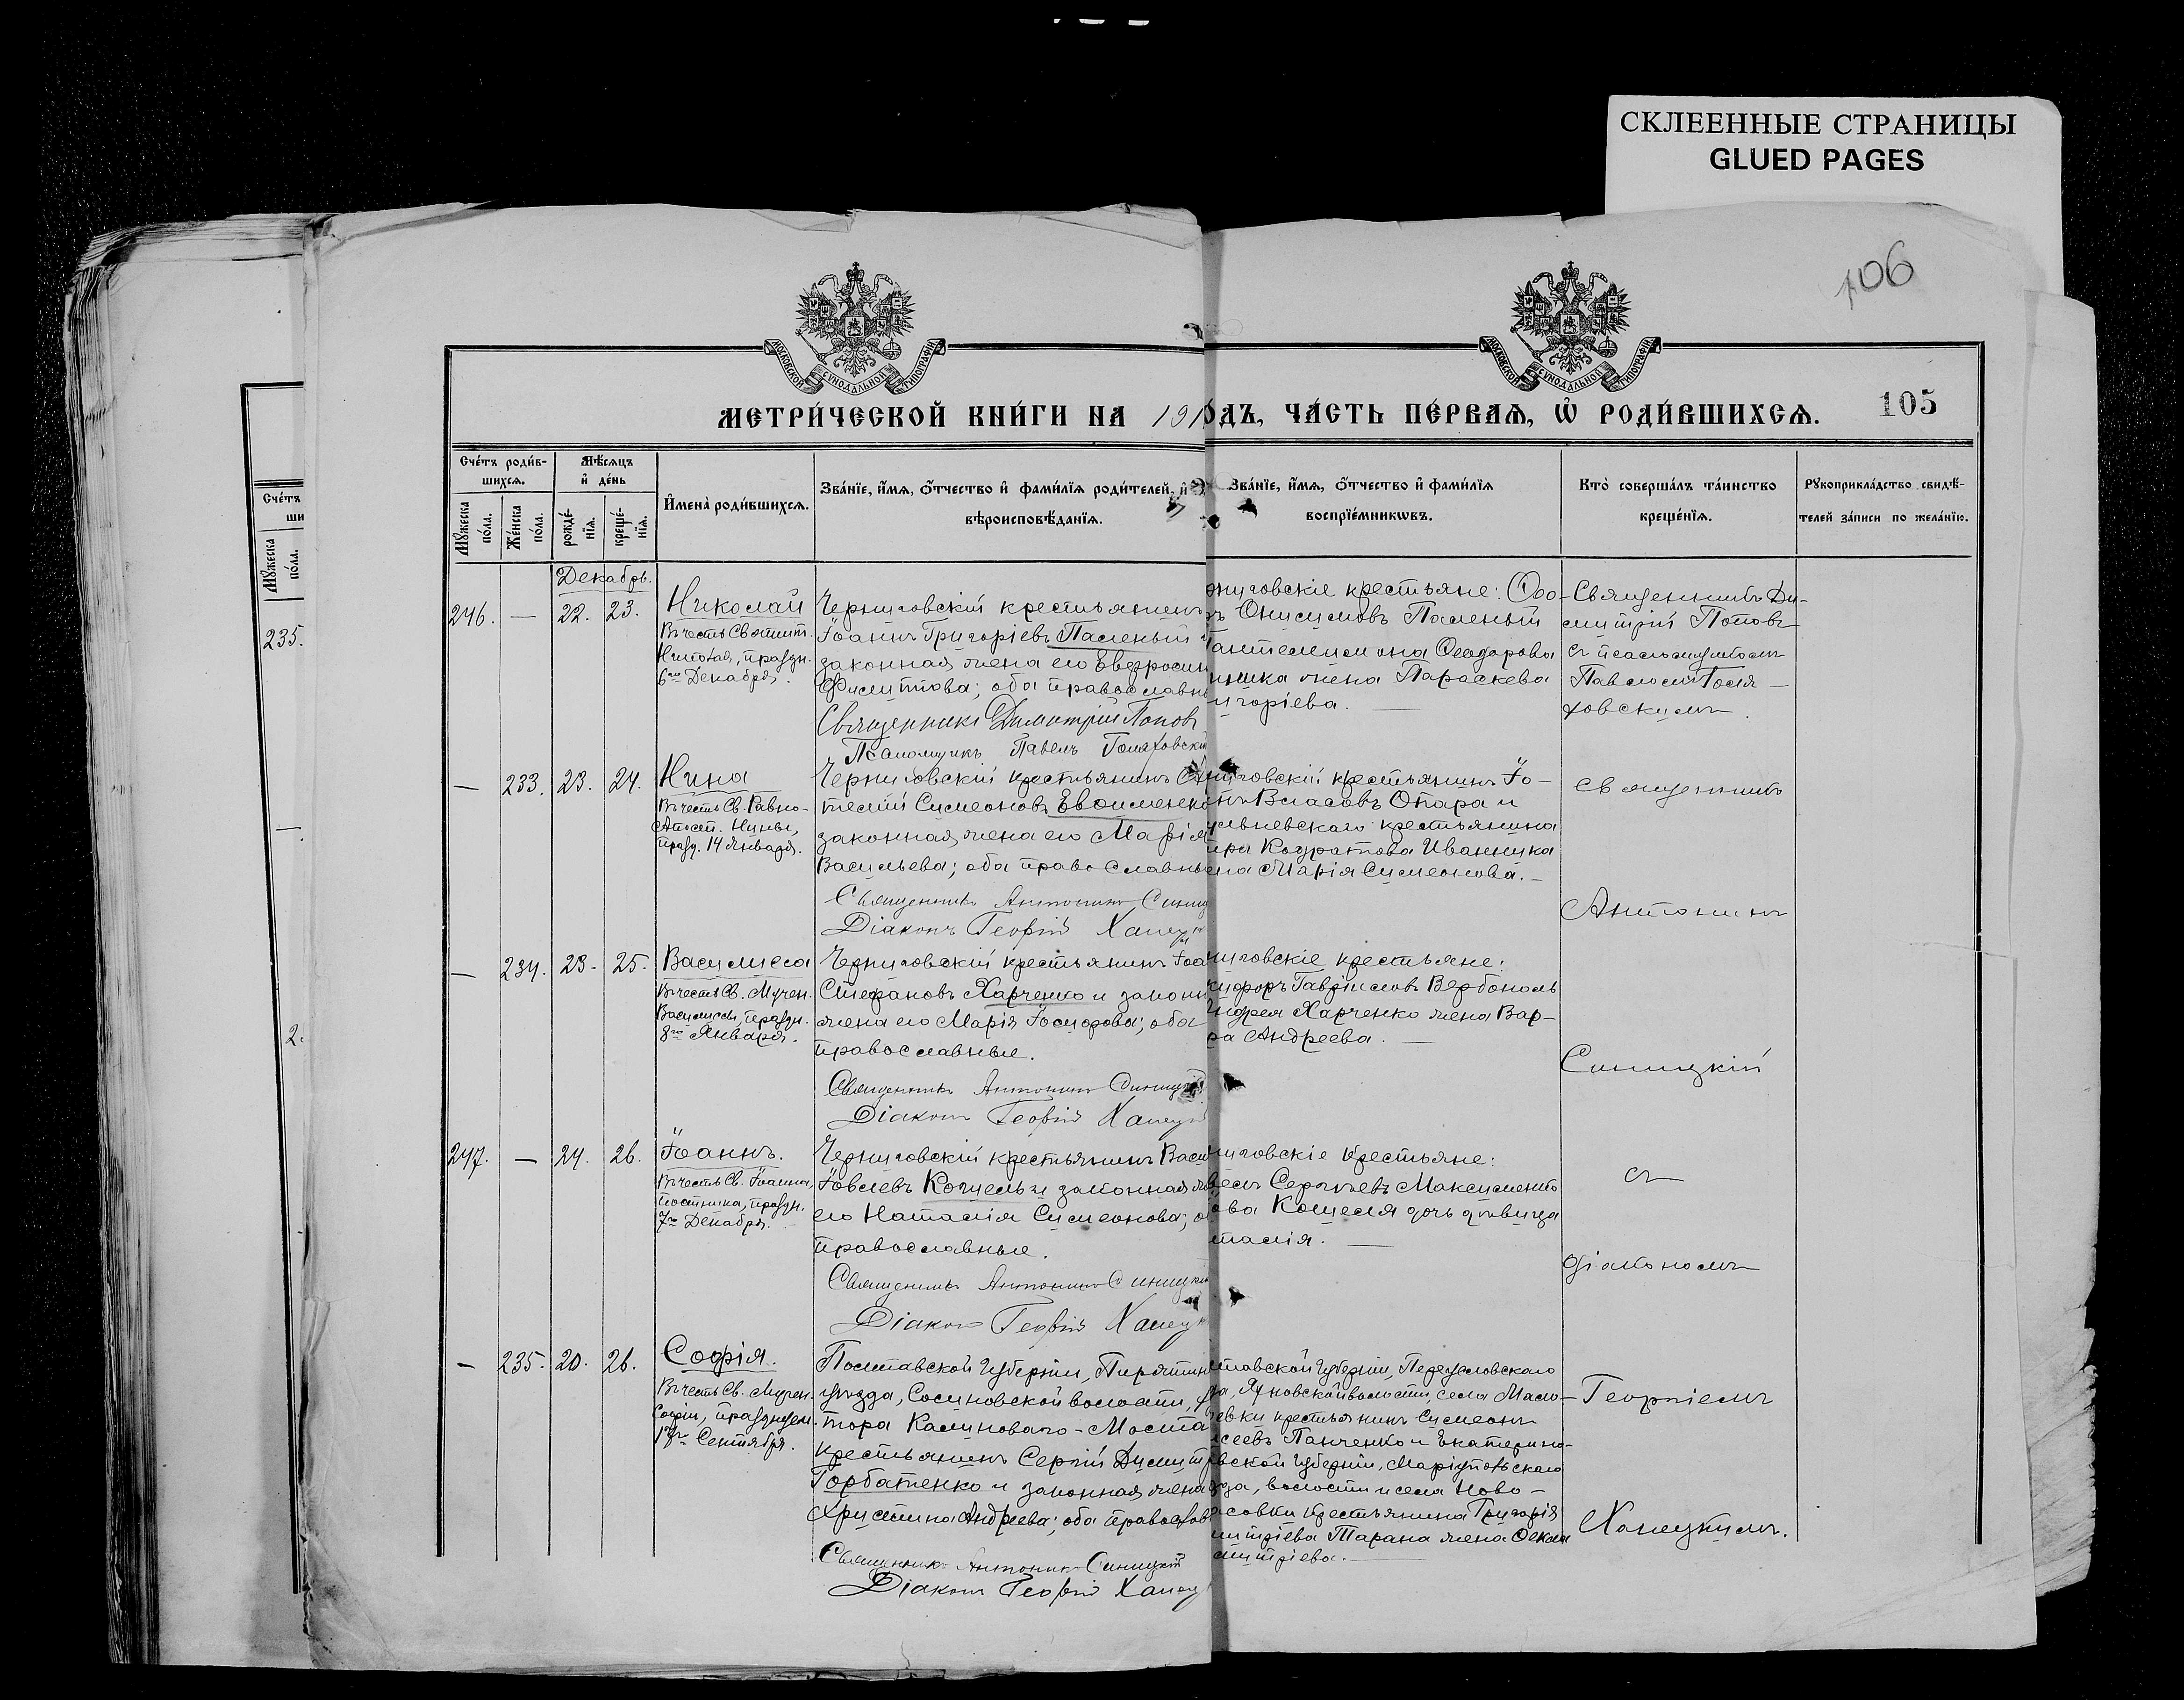 СКЛЕЕННЫЕ СТРАНИЦЫ
GLUED PAGES
106
105
МОСКОВСКОЙ СѴНОДАЛЬНОЙ ТИПОГРАФІИ
МОСКОВСКОЙ СѴНОДАЛЬНОЙ ТИПОГРАФІИ
МЕТРИ́ЧЕСКОЙ КНИ́ГИ НА 191
ОДЪ, ЧА́СТЬ ПЕ́РВАѦ, Ѡ҆ РОДИ́ВШИХСѦ.
Сче́тъ
ши
Мꙋжеска
по́ла.
235.
—
2.
Сче́тъ роди́в-
шихсѧ.
Мꙋжеска
по́ла.
Же́нска
по́ла.
Мѣ́сѧцъ
и҆ де́нь
рожде́-
нїѧ.
креще́-
нїѧ.
И҆мена̀ роди́вшихсѧ.
Зва́нїе, и҆́мѧ, ѻ҆́тчество и҆ фами́лїѧ роди́телей, и҆
вѣроисповѣ́данїѧ.
Зва́нїе, и҆́мѧ, ѻ҆́тчество и҆ фами́лїѧ
воспрїе́мникѡвъ.
Кто̀ соверша́лъ та́инство
креще́нїѧ.
Рꙋкоприкла́дство свидѣ́-
телей за́писи по жела́нїю.
Декабрь.
246. — 22. 23.
Николай
Въ честь Святит.
Николая, праздн.
6го Декабря.
Черниговскій крестьянинъ
Іоаннъ Григоріевъ Паленый
законная жена его Евфросин
Филиппова; оба православн
Священникъ Димитрій Поповъ
Псаломщикъ Павелъ Голяховскій
ниговскіе крестьяне: Ѳео-
ъ Онисимовъ Паленый
Пантелеимона Ѳеодорова
жена Параскева
игоріева. —
Священникъ Ди-
митрій Поповъ
съ псаломщикомъ
Павломъ Голя-
ховскимъ.
— 233. 23. 24.
Нина
Въ честь Св. Равно-
Апост. Нины,
празд. 14 Января.
Черниговскій крестьянинъ
Симеоновъ Евоименко
законная жена его Марія
Васильева; оба православны
Священникъ Антонинъ Синиц
Діаконъ Георгій Ханец
ниговскій крестьянинъ Іо-
нъ Власовъ Опара и
крестьянина
Кодратова Иванника
на Марія Симеонова. —
Священникъ
Антонинъ
— 234. 23. 25.
Василиса
Въ честь Св. Мучен.
Василисы, праздн.
8го Января.
Черниговскій крестьянинъ Іоа
Стефановъ Харченко и законн
жена его Марія Іосифова; оба
православные.
Священникъ Антонинъ Синицкій
Діаконъ Георгій Ханец
ниговскіе крестьяне:
кифоръ Гавріиловъ Вербополь
Андрея Харченко жена Вар-
ра Андреева. —
Синицкій
247. — 24. 26.
Іоаннъ.
Въ честь Св. Іоанна,
постника, праздн.
7го Декабря.
Черниговскій крестьянинъ Васи
Іовлевъ Коцель и законная ж
его Наталія Симеонова; о
православные.
Священникъ Антонинъ Синицкій
Діаконъ Георгій Ханец
ниговскіе крестьяне:
Сергѣевъ Максименко
ова Коцеля дочь дѣвица
талія. —
съ
діакономъ
— 235. 20. 26.
Софія.
Въ честь Св. Мучен.
Софіи, празднуем.
17го Сентября.
Полтавской Губерніи, Пирятин
уѣзда, Сасиновской волости,
тора Калиноваго-Моста
крестьянинъ Сергій Димитр
Горбатенко и законная жена
Христина Андреева; оба православ
Священникъ Антонинъ Синицкій
Діаконъ Георгій Ханец
лтавской Губерніи, Переяславского
да, волости, села Масло-
евки крестьянинъ Симеонъ
сеевъ Панченко и Екатерино-
вской Губерніи, Маріупольскаго
зда, волости и села Ново-
совки крестьянина Григорія
митріева Тарана жена
митріева. —
Георгіемъ
Ханецкимъ.